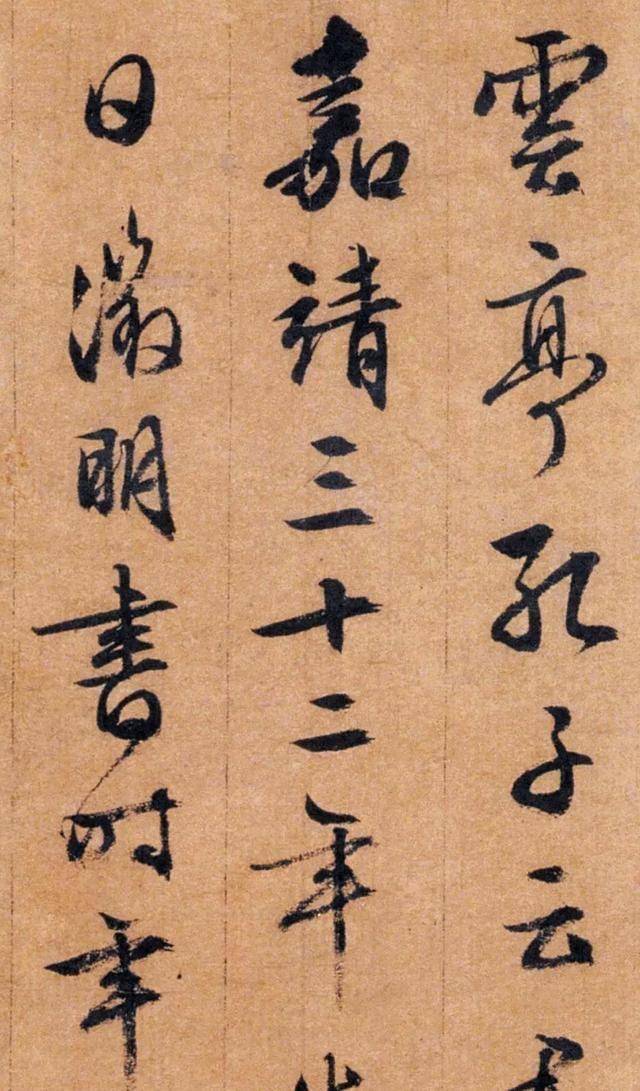 雲亭孔子云
嘉靖三十二年
日徵明書时年